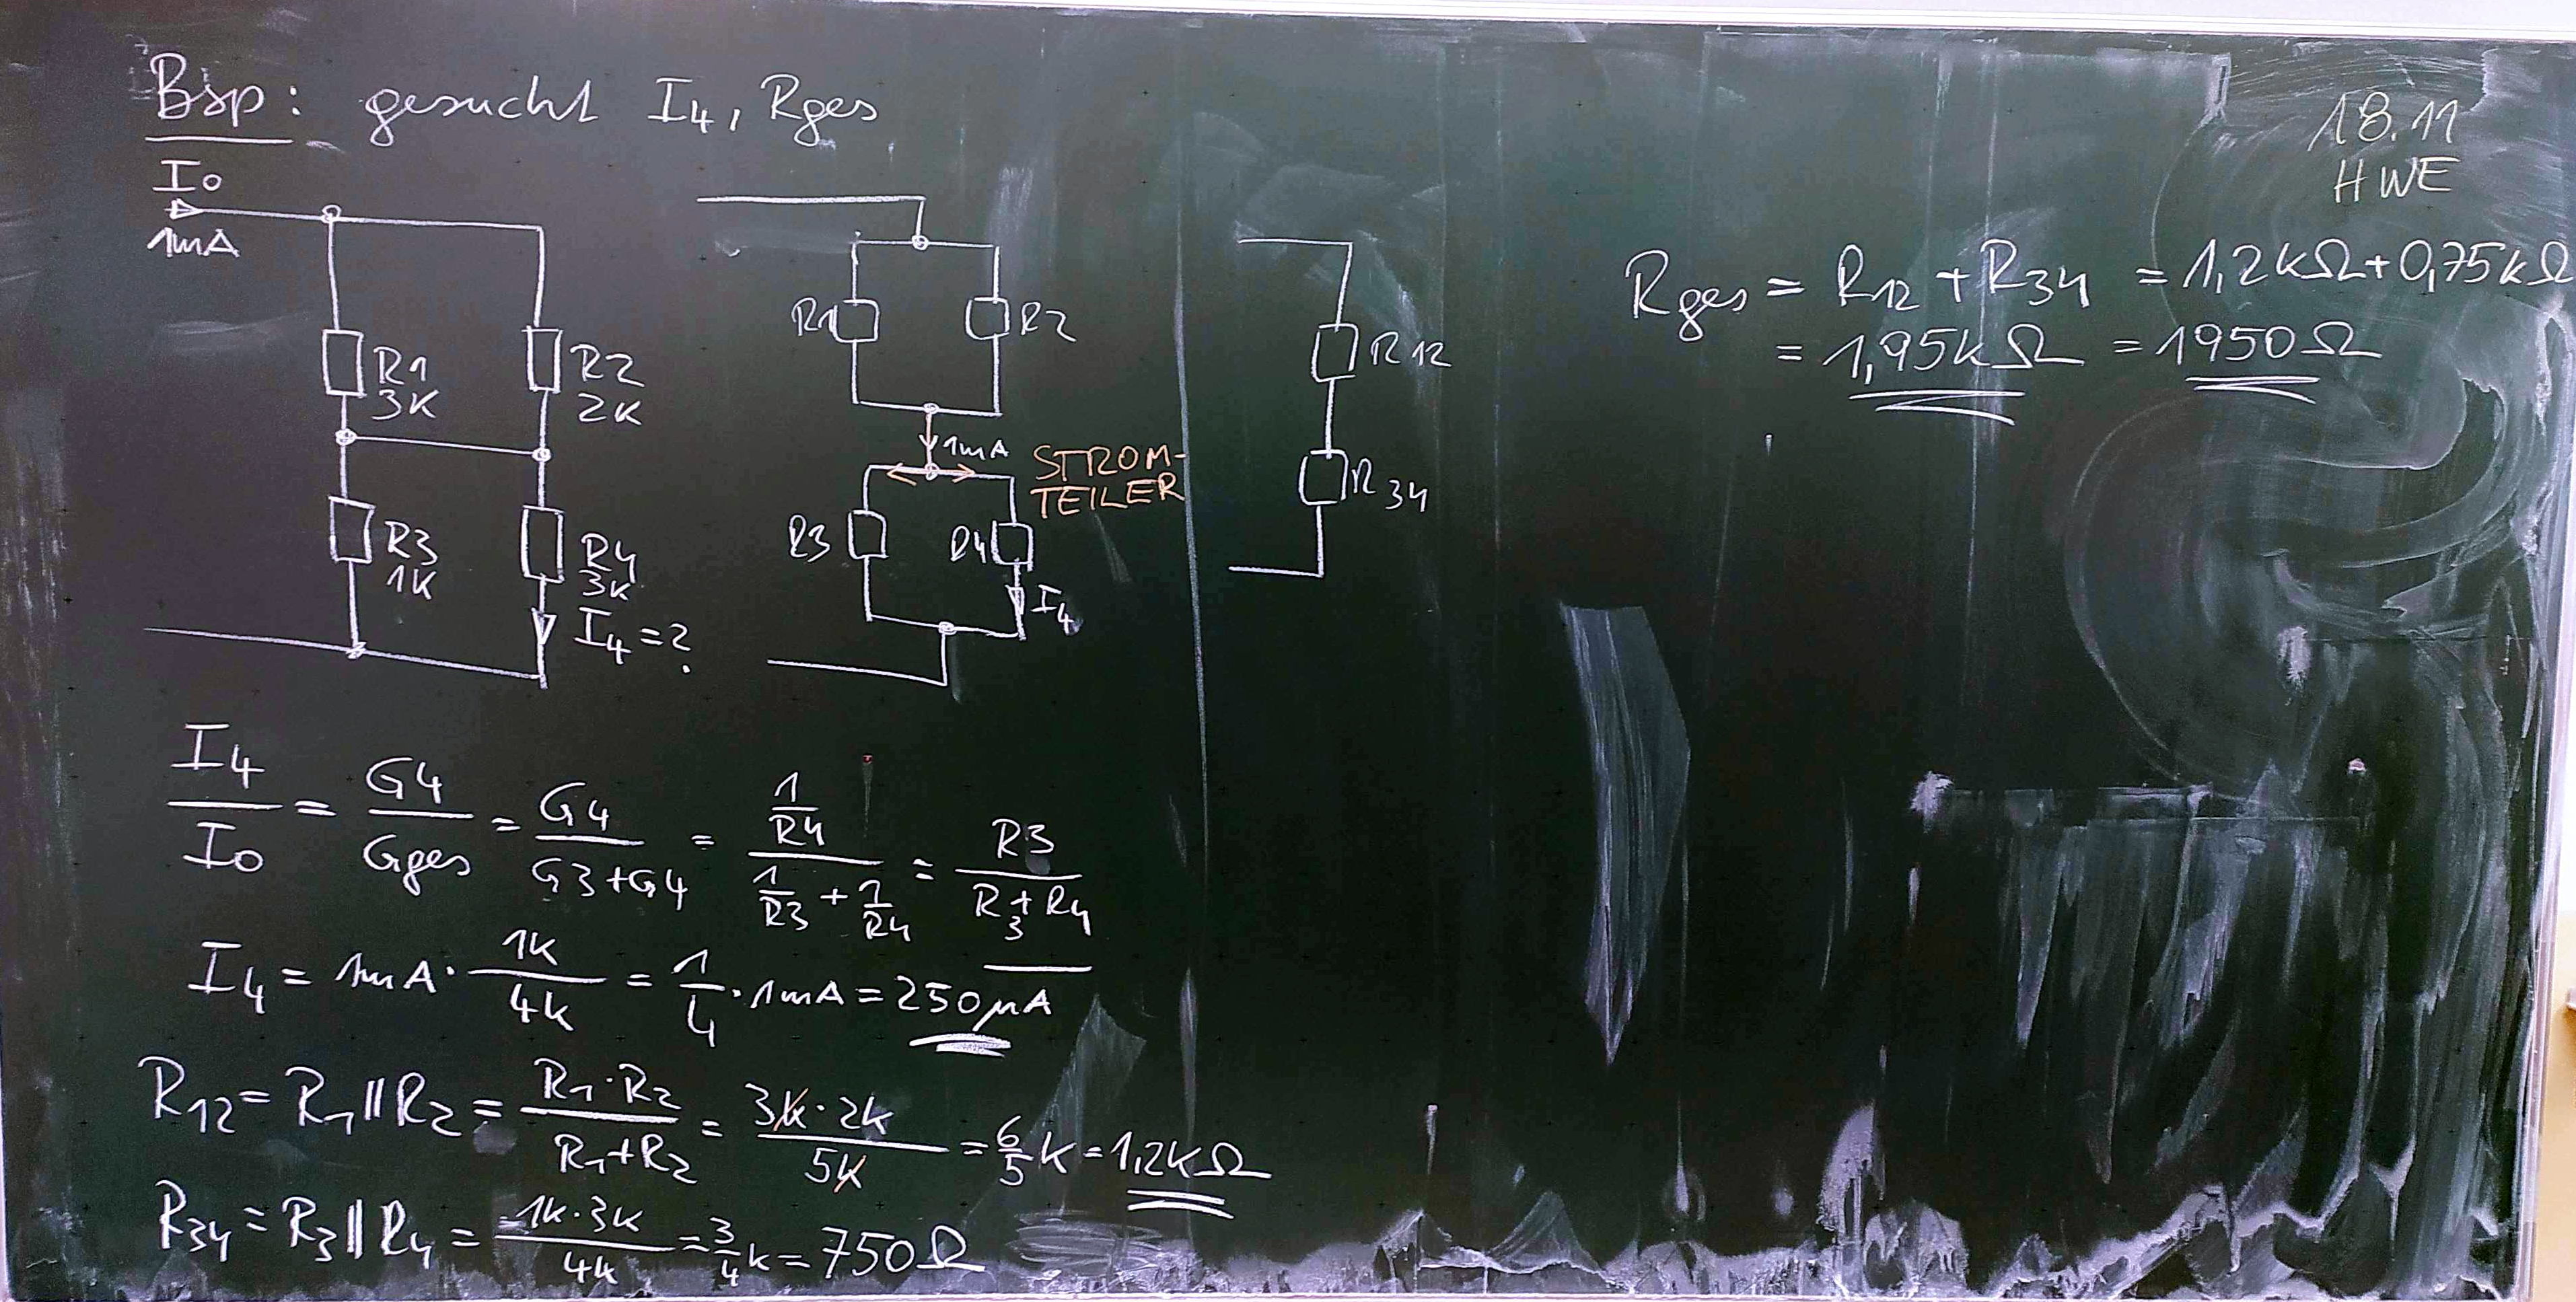 Bsp: gesucht I4, Rges
18.11
HWE
I0
1mA
R1
3K
R2
2K
R3
1K
R4
3K
I4 = ?
R1
R2
1mA
STROM-
TEILER
R3
R4
I4
R12
R34
Rges = R12 + R34 = 1,2kΩ + 0,75kΩ
= 1,95kΩ = 1950Ω
I4/I0 = G4/Gges = G4/(G3+G4) = (1/R4)/(1/R3 + 1/R4) = R3/(R3+R4)
I4 = 1mA · 1k/4k = 1/4 · 1mA = 250µA
R12 = R1 || R2 = (R1·R2)/(R1+R2) = (3k·2k)/5k = 6/5 k = 1,2kΩ
R34 = R3 || R4 = (1k·3k)/4k = 3/4 k = 750Ω